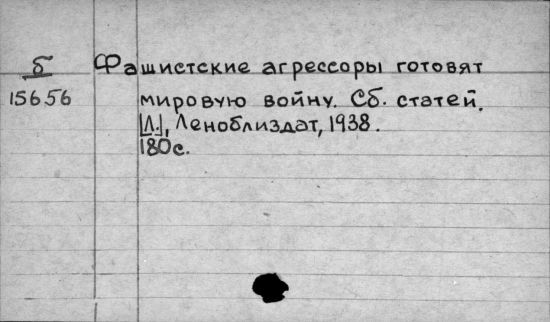 б Фашистские агрессоры готовят
15656 мировую войну. Сб. статей.
[Л.], Леноблиздат, 1938.
180с.